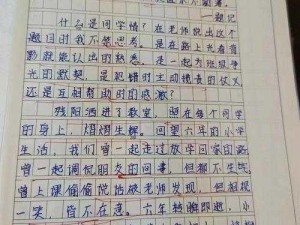 ——题记
什么是同学情？在老师说出这个
题目时我不能思考。是在路上光看背
影就能认出的熟悉，是一起为班级争
光的默契，是犯错时主动担责的仗义
还是互相帮助时的感激？
残阳洒进了教室，照在每个同学
的身上，熠熠生辉。回望六年的小学
生活，我们曾一起走过放学回家的路
曾一起调侃朋友的同事，但都不生气
曾上课偷偷说话被老师发现，但相视
一笑，皆不在意。六年转瞬即逝，小